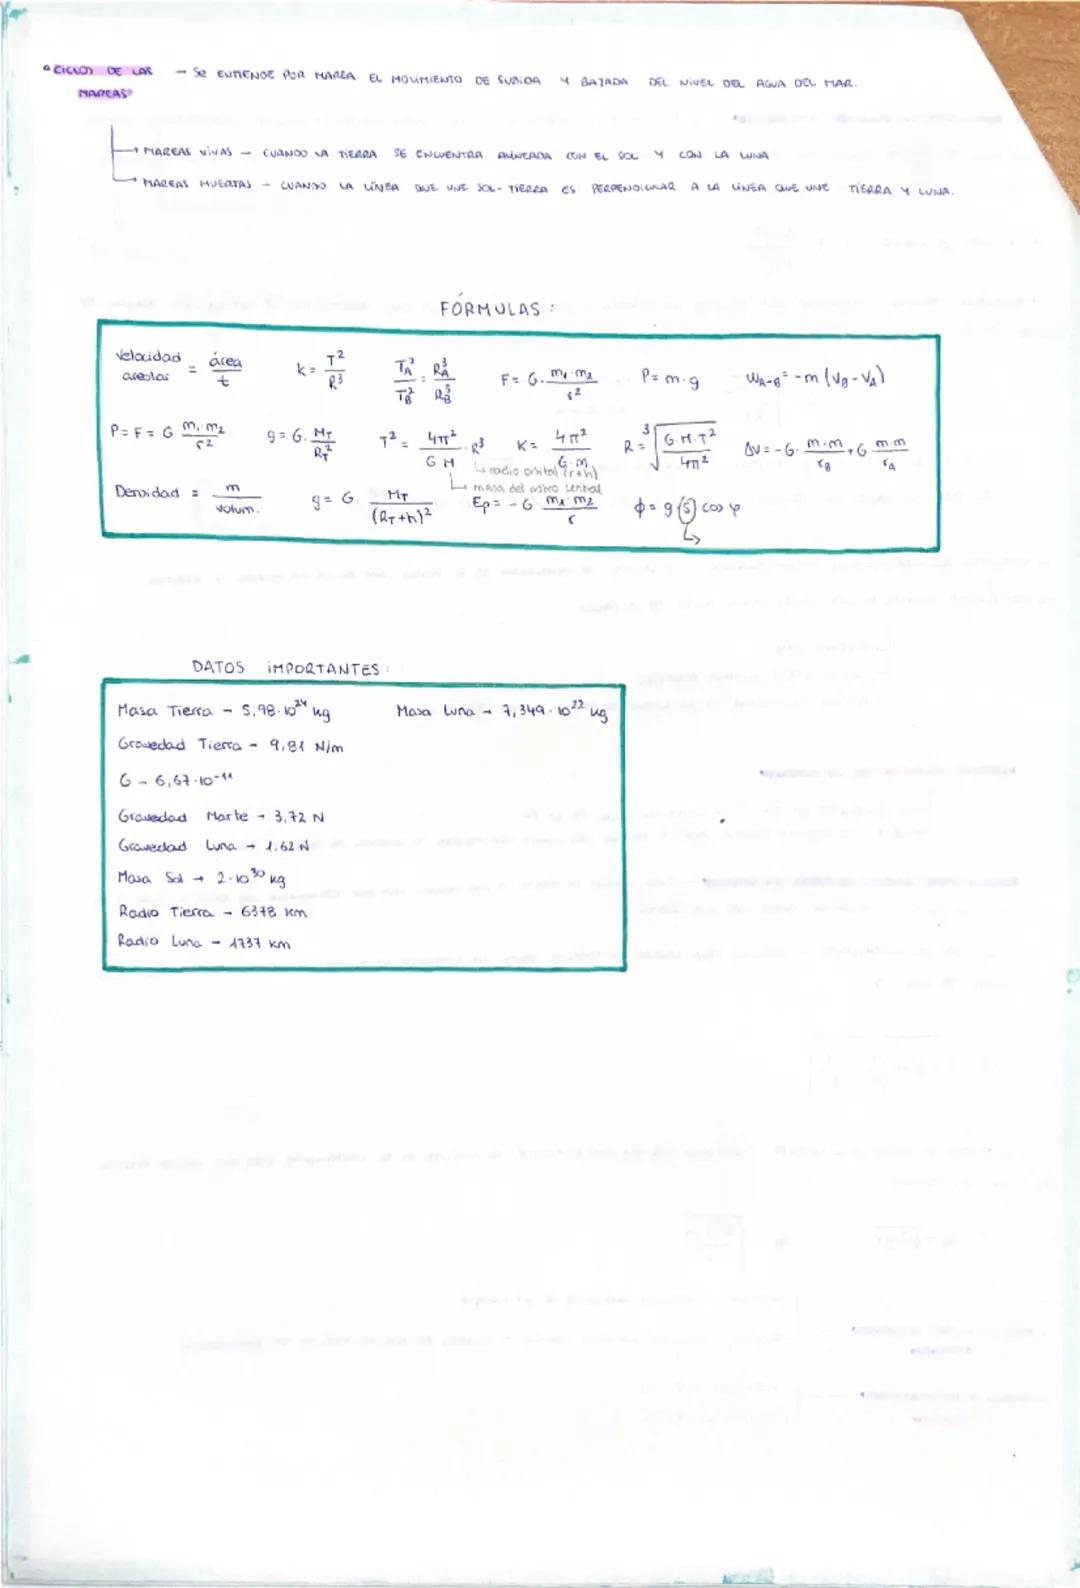 ° CICLOS DE LAS MAREAS - Se ENTIENDE POR MAREA EL MOVIMIENTO DE SUBIDA Y BAJADA DEL NIVEL DEL AGUA DEL MAR.
→ MAREAS VIVAS - CUANDO LA TIERRA SE ENCUENTRA ALINEADA CON EL SOL Y CON LA LUNA
→ MAREAS MUERTAS - CUANDO LA LÍNEA QUE UNE SOL-TIERRA ES PERPENDICULAR A LA LÍNEA QUE UNE TIERRA Y LUNA.
FÓRMULAS:
Velocidad areolar = área/t K = T²/R³ T_A²/T_B² = R_A³/R_B³ F = G · m₁·m₂/r² P = m·g W_A-B = -m (V_B - V_A)
P = F = G m₁·m₂/r² g = G · M_T/R_T² T² = 4π²/G M · R³ K = 4π²/G·m R = ³√(G·M·T²/4π²) ΔV = -G · m·m/r_B + G m·m/r_A
↳ radio orbital (r+h)
↳ masa del astro central
Densidad = m/volum. g = G · M_T/(R_T+h)² Ep = -G m₁·m₂/r ϕ = g (S) cos φ
DATOS IMPORTANTES:
Masa Tierra - 5,98·10²⁴ kg Masa Luna → 7,349·10²² kg
Gravedad Tierra - 9,81 N/m
G - 6,67·10⁻¹¹
Gravedad Marte → 3,72 N
Gravedad Luna → 1,62 N
Masa Sol → 2·10³⁰ kg
Radio Tierra - 6378 km
Radio Luna - 1737 km